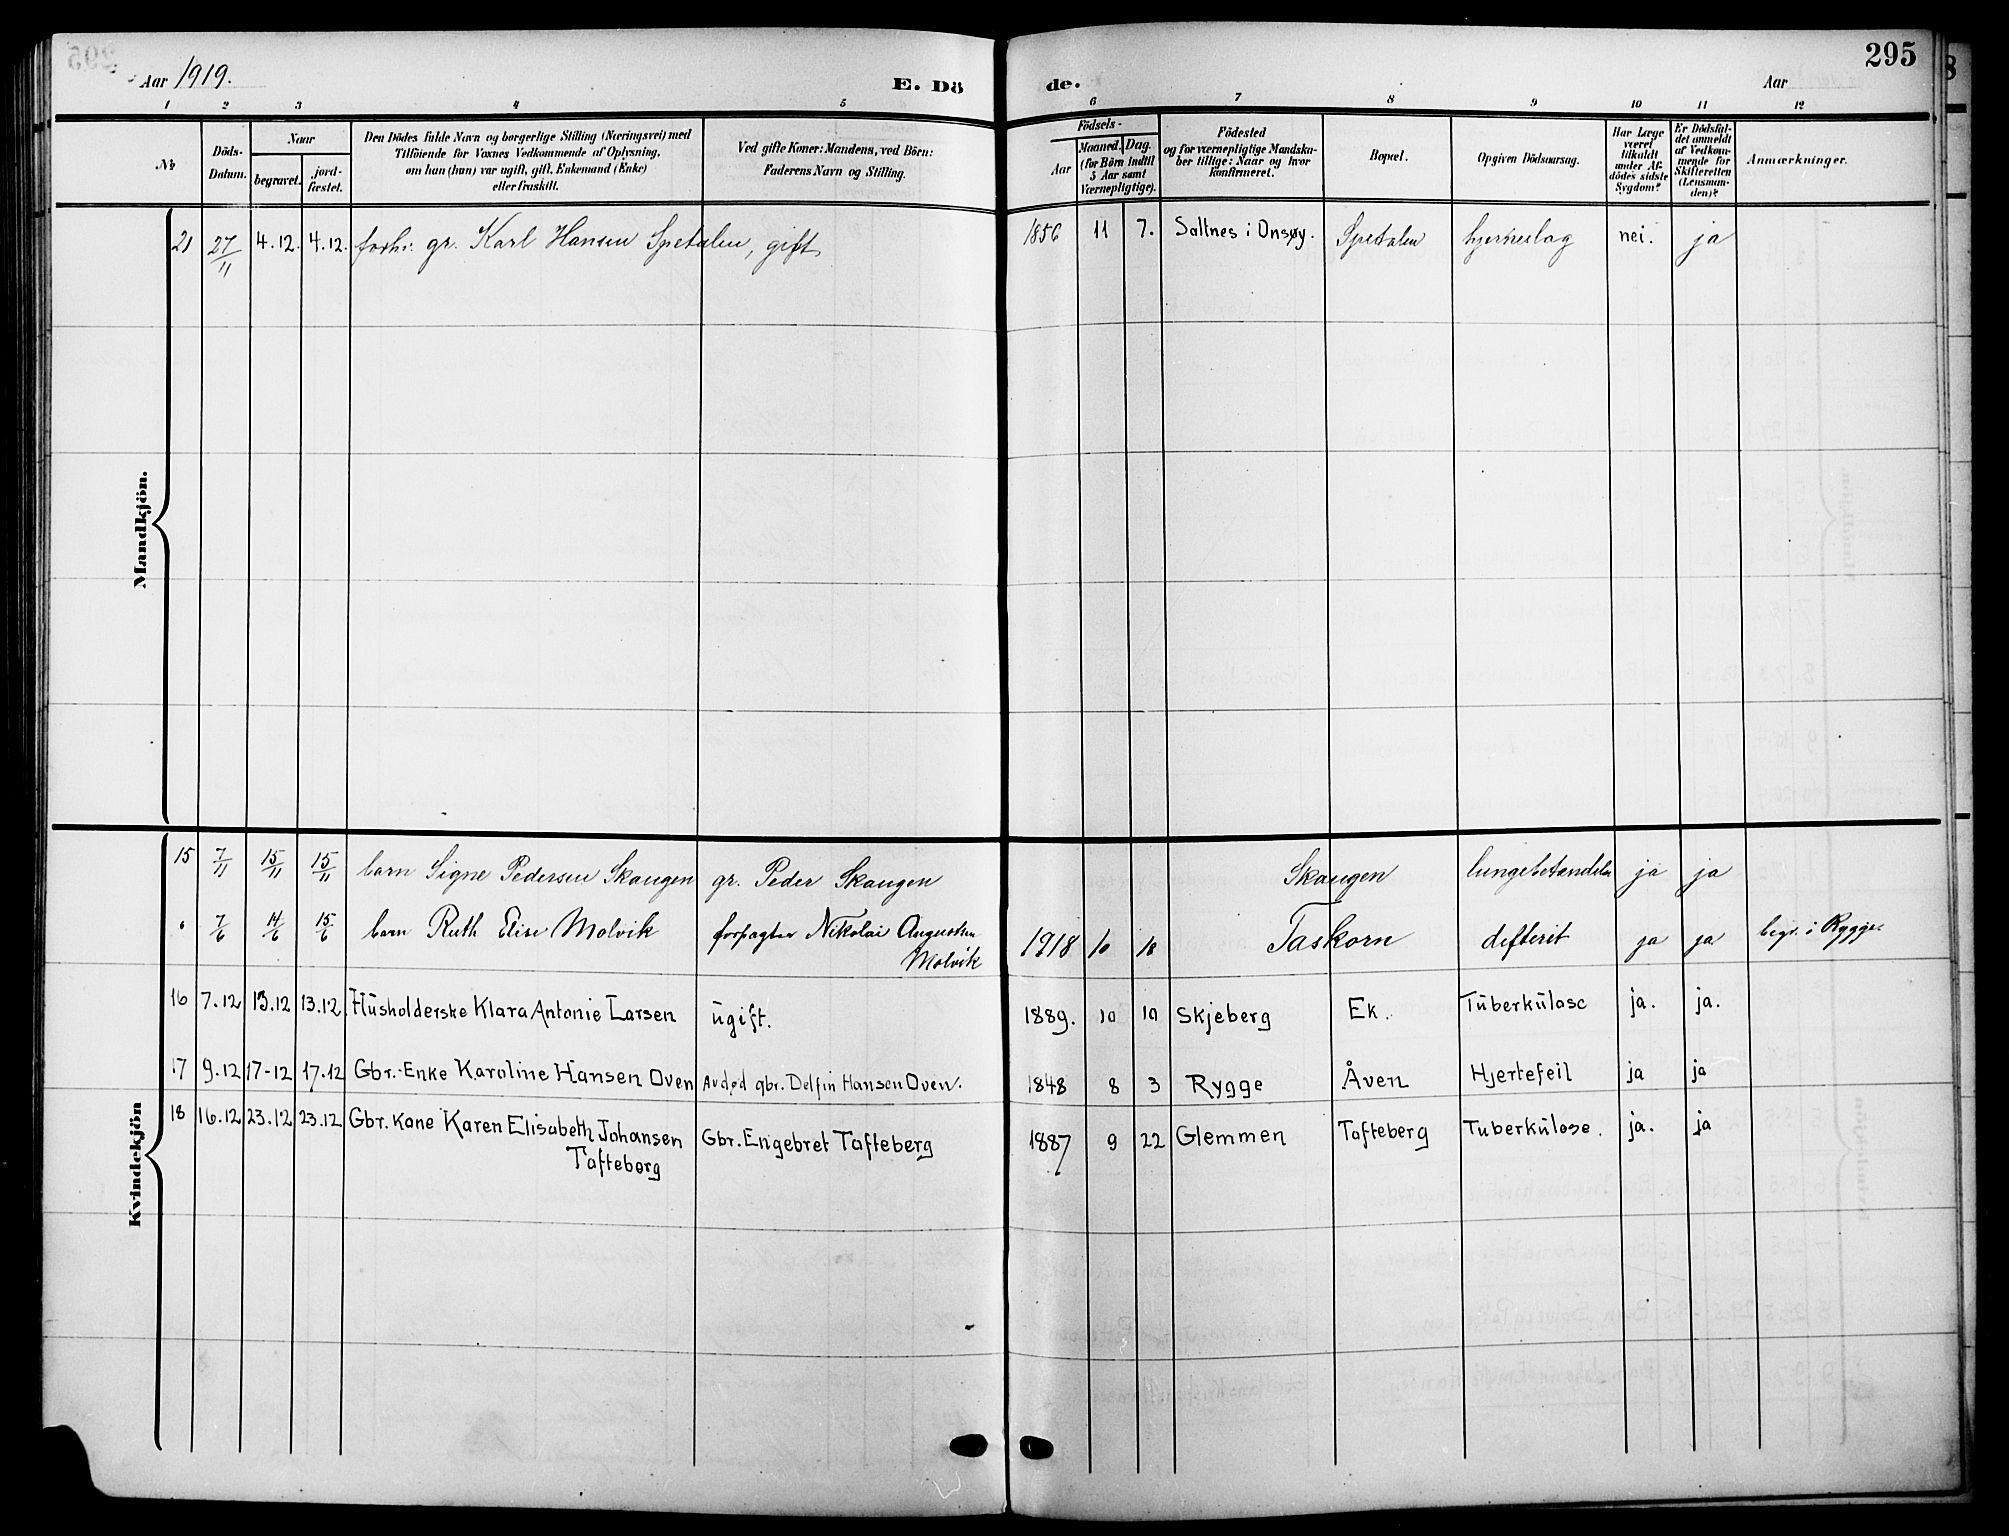 Aar 1919.
E. Dö
de.
Aar
295
1 2 3 4 5 6 7 8 9 10 11 12
№
Döds-
Datum.
Naar
begravet.
jord-
fæstet.
Den Dödes fulde Navn og borgerlige Stilling (Næringsvei) med
Tilföiende for Voxnes Vedkommende af Oplysning,
om han (hun) var ugift, gift, Enkemand (Enke)
eller fraskilt.
Ved gifte Koner: Mandens, ved Börn:
Faderens Navn og Stilling.
Födsels-
Aar
Maaned. Dag.
(for Börn indtil
5 Aar samt
Værnepligtige).
Födested
og for værnepligtige Mandska-
ber tillige: Naar og hvor
konfirmeret.
Bopæl.
Opgiven Dödsaarsag.
Har Læge
været
tilkaldt
under Af-
dödes sidste
Sygdom?
Er Dödsfal-
det anmeldt
af Vedkom-
mende for
Skifteretten
(Lensman-
den)?
Anmærkninger.
Mandkjön.
21 27/11 4.12. 4.12. forh. gr. Karl Hansen Spetalen, gift 1856 11 7. Saltnes i Onsøy. Spetalen hjerneslag nei. ja
Kvindekjön
15 7/11 15/11 15/11 barn Signe Pedersen Skaugen gr. Peder Skaugen Skaugen lungebetændelse ja ja
7/6 14/6 15/6 barn Ruth Elise Molvik forpagter Nikolai Augustsen
Molvik 1918 10 18 Taskorn defterit ja ja begr. i Rygge.
16 7.12 13.12 13.12. Husholderske Klara Antonie Larsen ugift. 1889. 10 10 Skjeberg Ek. Tuberkulose ja. ja.
17 9.12 17-12 17.12 Gbr.-Enke Karoline Hansen Oven Avdød gbr. Delfin Hansen Oven. 1848 8 3 Rygge Åven Hjertefeil ja ja
18 16.12 23.12 23.12 Gbr. Kone Karen Elisabeth Johansen
Tafteberg Gbr. Engebret Tafteberg 1887 9 22 Glemmen Tafteberg Tuberkulose. ja. ja